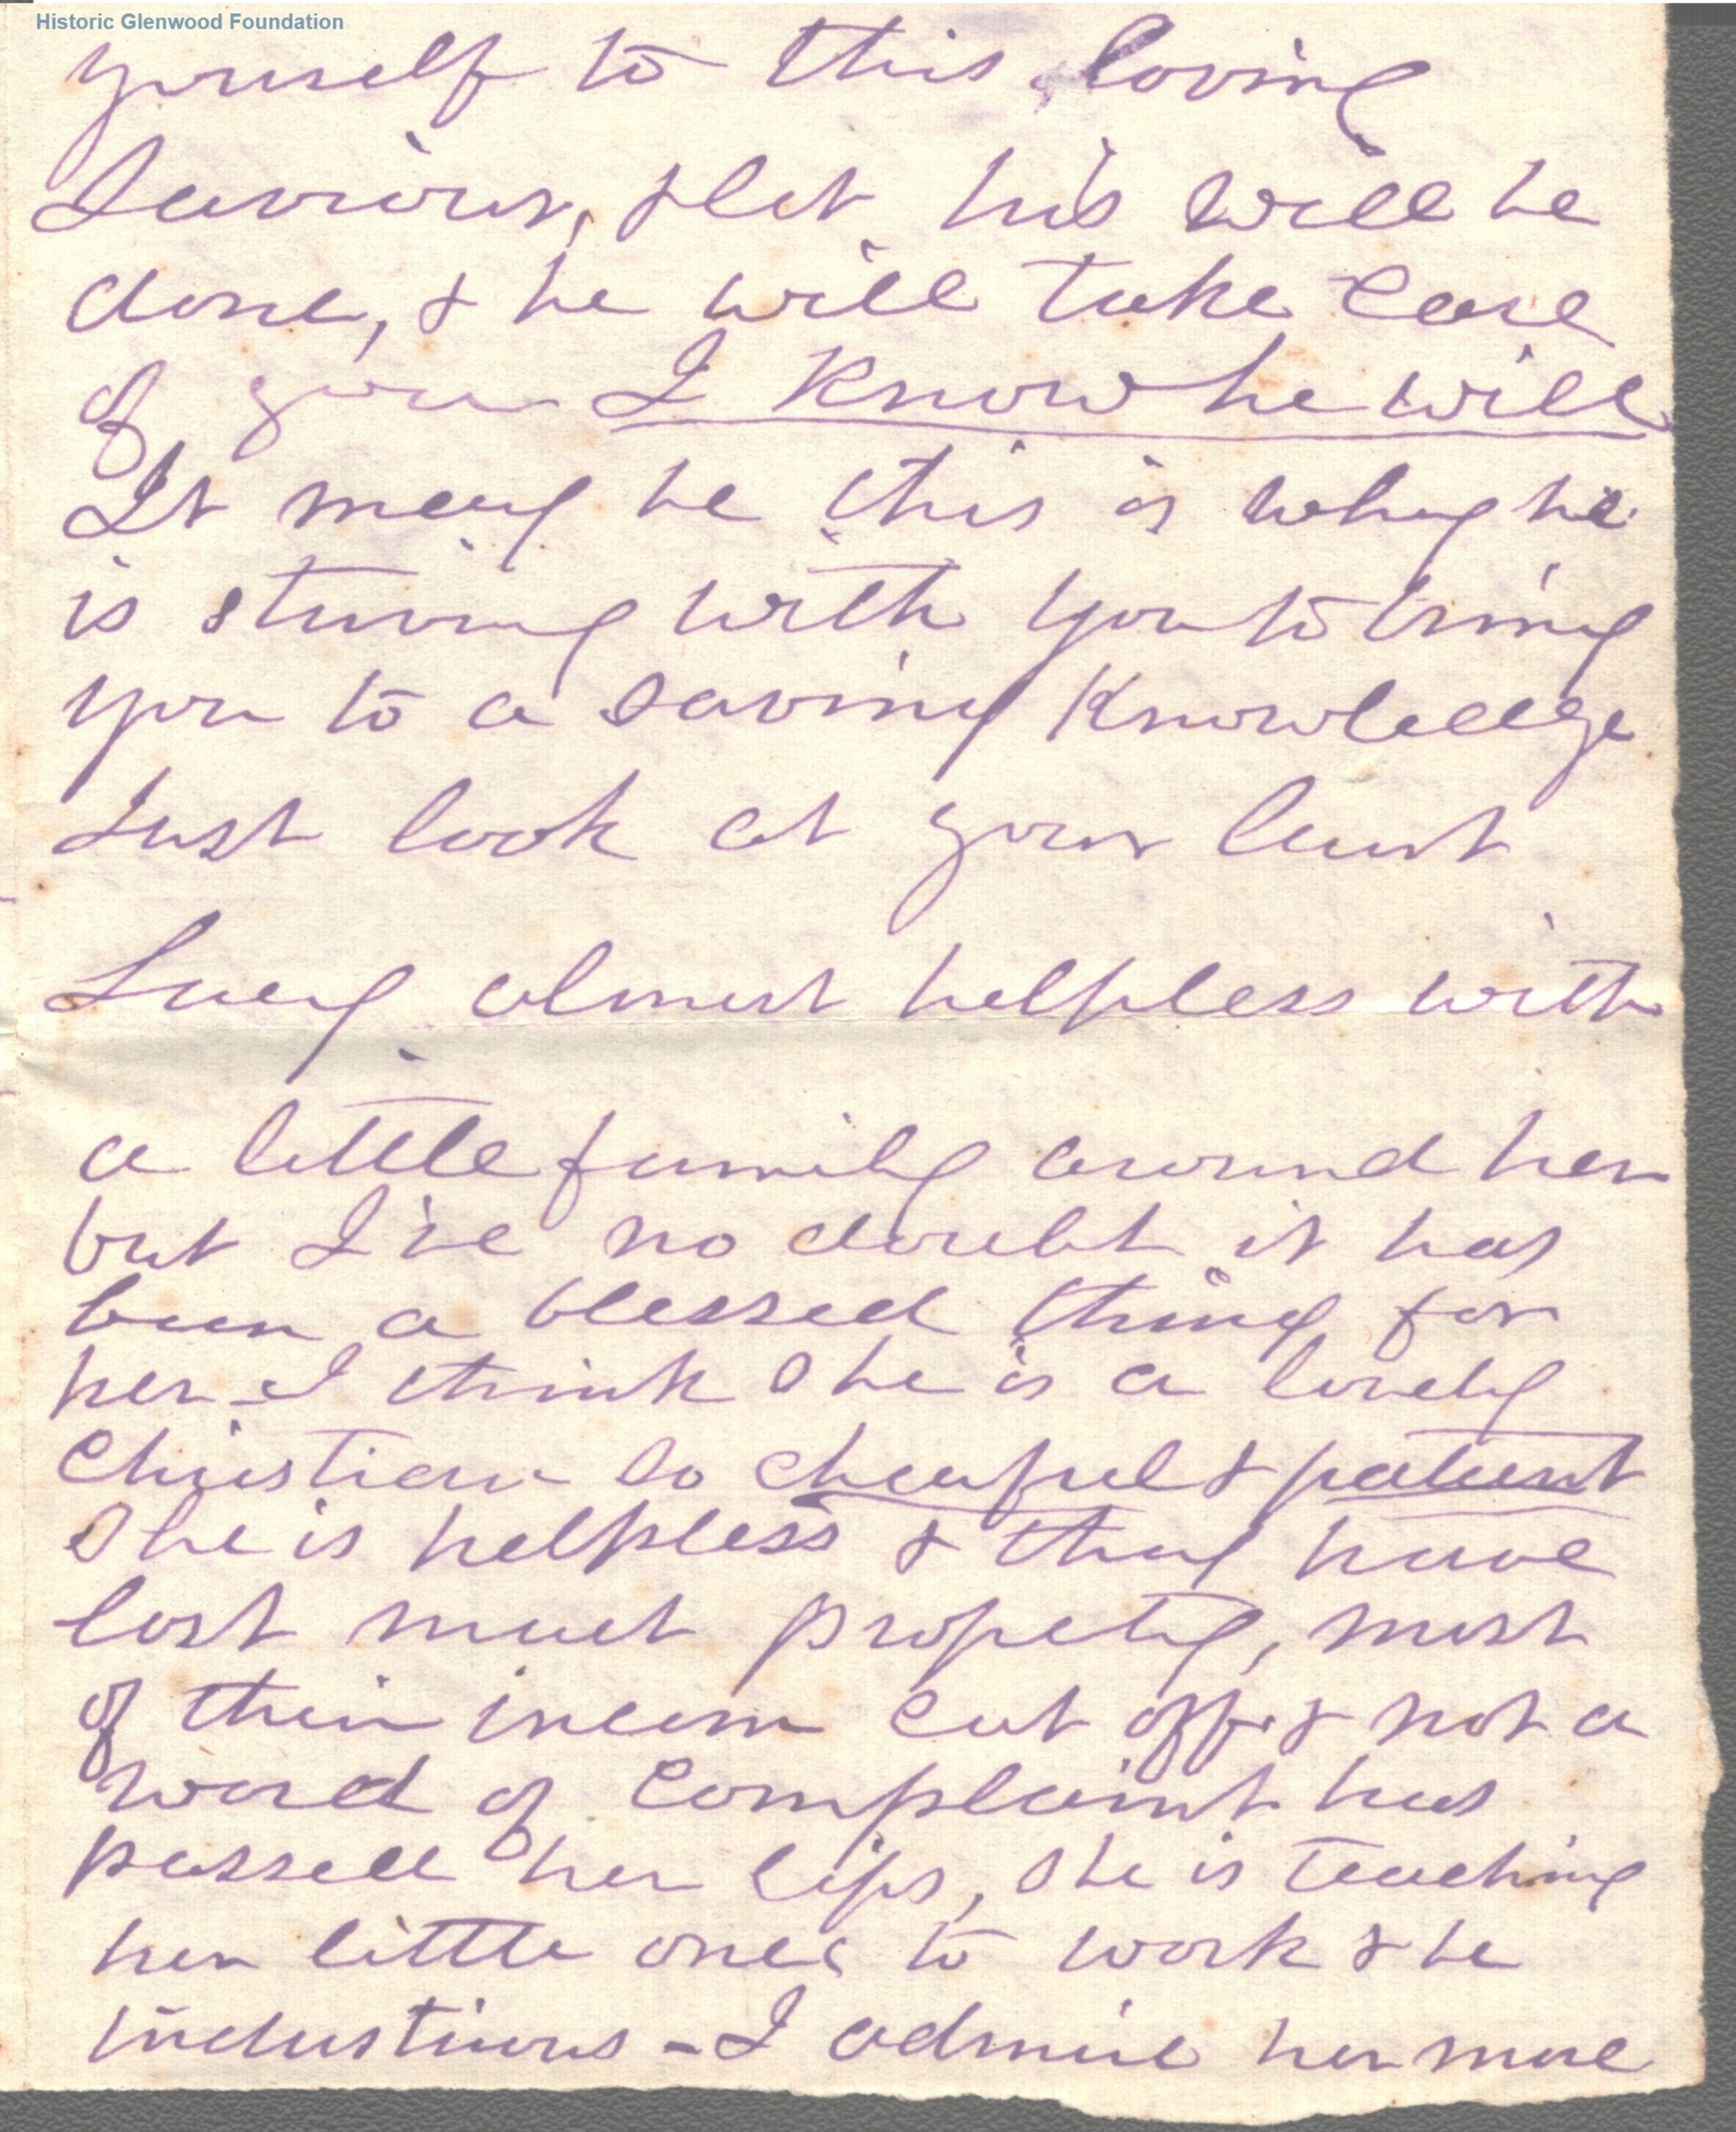 Historic Glenwood Foundation
yourself to this loving
Saviour, & let his will be
done, & he will take care
of you I know he will
It may be this is why he
is striving with you to bring
you to a saving Knowledge
Just look at your Aunt
Lucy almost helpless with
a little family around her
but I've no doubt it has
been a blessed thing for
her - I think she is a lovely
Christian so cheerful & patient
She is helpless & they have
lost much propety, most
of their incom cut off & not a
word of complaint has
passed her lips, she is teaching
her little ones to work & be
industrious - I admire her more